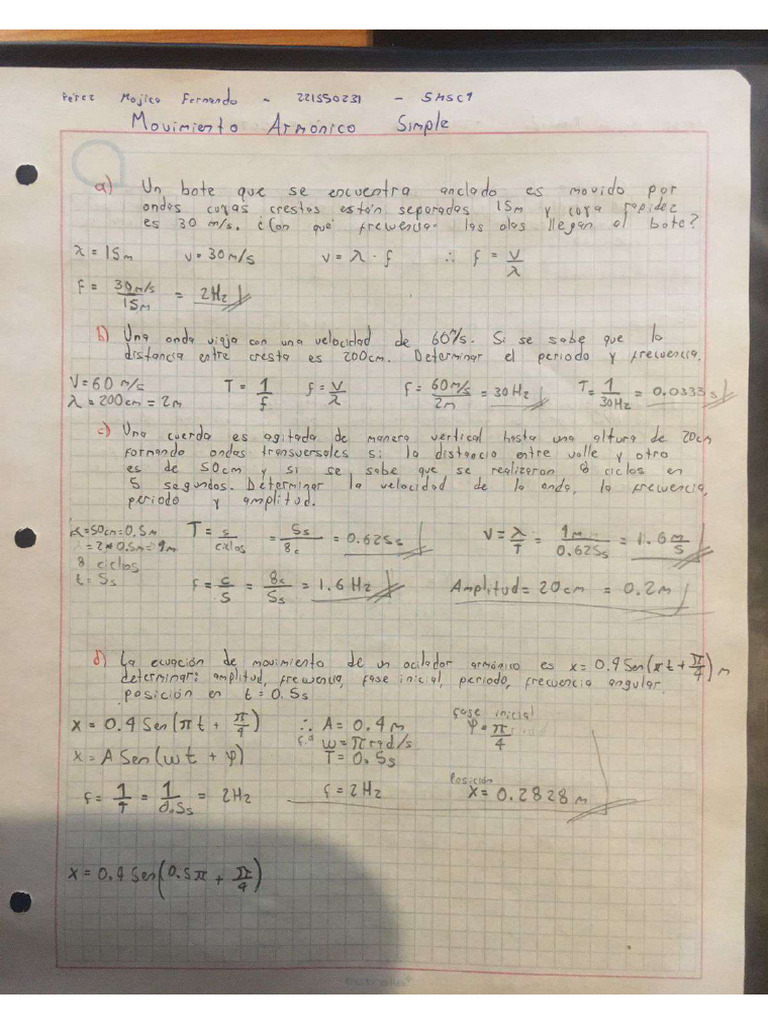 Pérez Mojica Fernando - 221550231 - SMSC1
Movimiento Armónico Simple
a) Un bote que se encuentra anclado es movido por
ondas cuyas crestas están separadas 15m y cuya rapidez
es 30 m/s. ¿Con qué frecuencia las olas llegan al bote?
λ = 15m v = 30 m/s v = λ · f ∴ f = v/λ
f = 30m/s / 15m = 2Hz
b) Una onda viaja con una velocidad de 60m/s. Si se sabe que la
distancia entre cresta es 200cm. Determinar el periodo y frecuencia.
V = 60 m/s T = 1/f f = v/λ f = 60m/s / 2m = 30Hz T = 1/30Hz = 0.0333s
λ = 200cm = 2m
c) Una cuerda es agitada de manera vertical hasta una altura de 20cm
formando ondas transversales si la distancia entre valle y otro
es de 50cm y si se sabe que se realizaron 8 ciclos en
5 segundos. Determinar la velocidad de la onda, la frecuencia,
periodo y amplitud.
=50cm=0.5m T = s/ciclos = 5s/8c = 0.625s V = λ/T = 1m/0.625s = 1.6 m/s
λ = 2*0.5m = 1m
8 ciclos
t = 5s f = c/s = 8c/5s = 1.6 Hz Amplitud = 20cm = 0.2m
d) La ecuación de movimiento de un ocilador armónico es x = 0.4 Sen(πt + π/4) m
determinar: amplitud, frecuencia, fase inicial, periodo, frecuencia angular
posición en t = 0.5s
x = 0.4 Sen(πt + π/4) ∴ A = 0.4m fase inicial
f.a ω = π rad/s φ = π/4
x = A Sen(ωt + φ) T = 0.5s
f = 1/T = 1/0.5s = 2Hz f = 2Hz Posición x = 0.2828m
x = 0.4 Sen(0.5π + π/4)